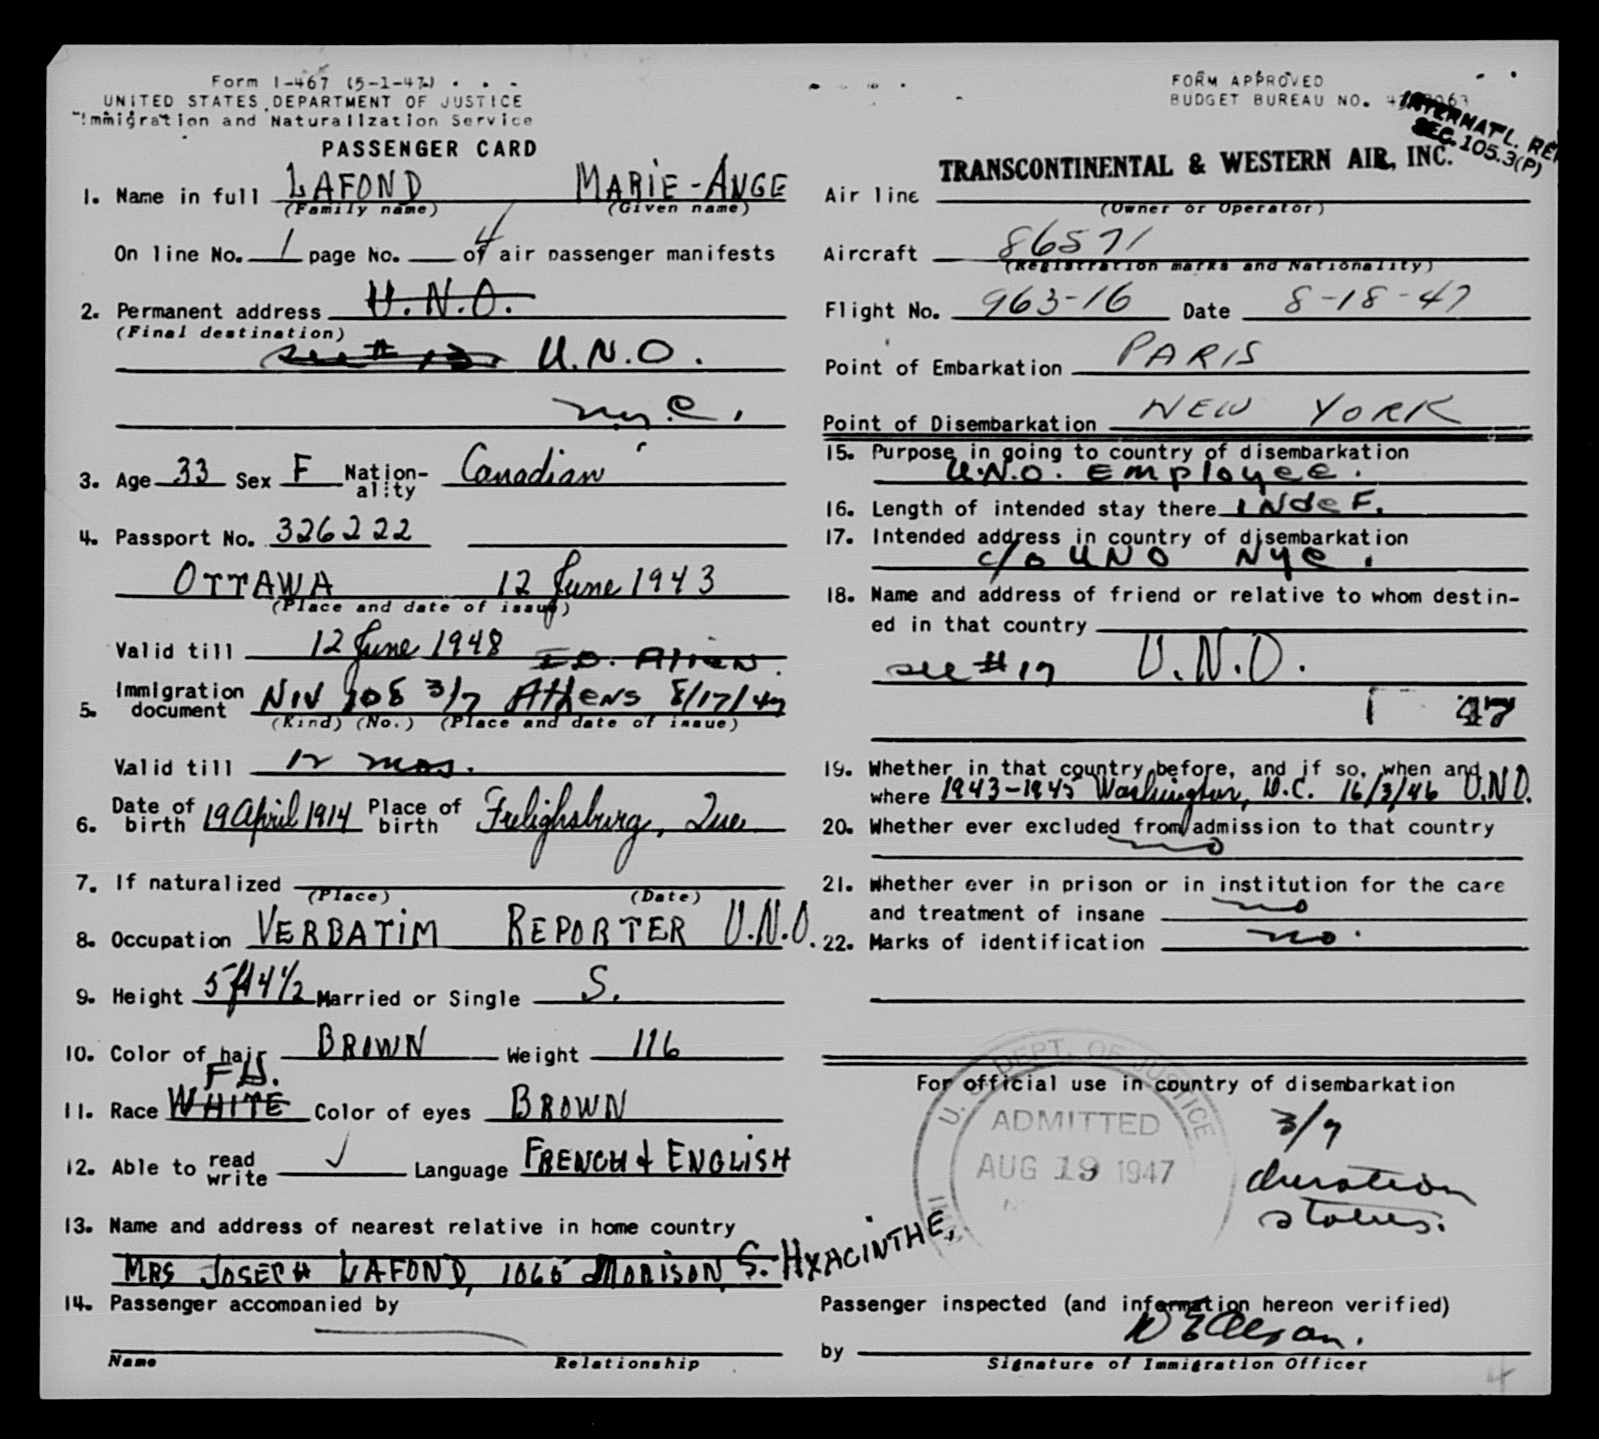 Form I-467 (5-1-47)
UNITED STATES DEPARTMENT OF JUSTICE
Immigration and Naturalization Service
PASSENGER CARD
1. Name in full LAFOND MARIE-ANGE
(Family name) (Given name)
On line No. 1 page No. 4 of air passenger manifests
2. Permanent address U.N.O.
(Final destination)
see # 17 U.N.O.
nyc.
3. Age 33 Sex F Nation-ality Canadian
4. Passport No. 326222
OTTAWA 12 June 1943
(Place and date of issue)
Valid till 12 June 1948
5. Immigration document NIV 108 3/7 Athens 8/17/47
(Kind) (No.) (Place and date of issue)
Valid till 12 mos.
6. Date of birth 19 April 1914 Place of birth Frelighsburg, Que
7. If naturalized
(Place) (Date)
8. Occupation VERBATIM REPORTER U.N.O.
9. Height 5 ft 4 1/2 Married or Single S.
10. Color of hair BROWN Weight 116
11. Race WHITE Color of eyes BROWN
12. Able to read write ✓ Language FRENCH & ENGLISH
13. Name and address of nearest relative in home country
MRS JOSEPH LAFOND, 1065 MORISON, S. HYACINTHE,
14. Passenger accompanied by
Name Relationship
FORM APPROVED
BUDGET BUREAU NO.
INTERNAT'L. RE
SEC. 105.3(P)
Air line TRANSCONTINENTAL & WESTERN AIR, INC.
(Owner or Operator)
Aircraft 86571
(Registration marks and Nationality)
Flight No. 963-16 Date 8-18-47
Point of Embarkation PARIS
Point of Disembarkation NEW YORK
15. Purpose in going to country of disembarkation
U.N.O. Employee.
16. Length of intended stay there INdeF.
17. Intended address in country of disembarkation
c/o UNO NYC.
18. Name and address of friend or relative to whom destin-
ed in that country
see # 17 U.N.O.
47
19. Whether in that country before, and if so, when and
where 1943-1945 Washington, D.C. 16/3/46 U.N.O.
20. Whether ever excluded from admission to that country
no
21. Whether ever in prison or in institution for the care
and treatment of insane no
22. Marks of identification no.
For official use in country of disembarkation
U. S. DEPT. OF JUSTICE
ADMITTED
AUG 19 1947
3/7
duration
status.
Passenger inspected (and information hereon verified)
by
Signature of Immigration Officer